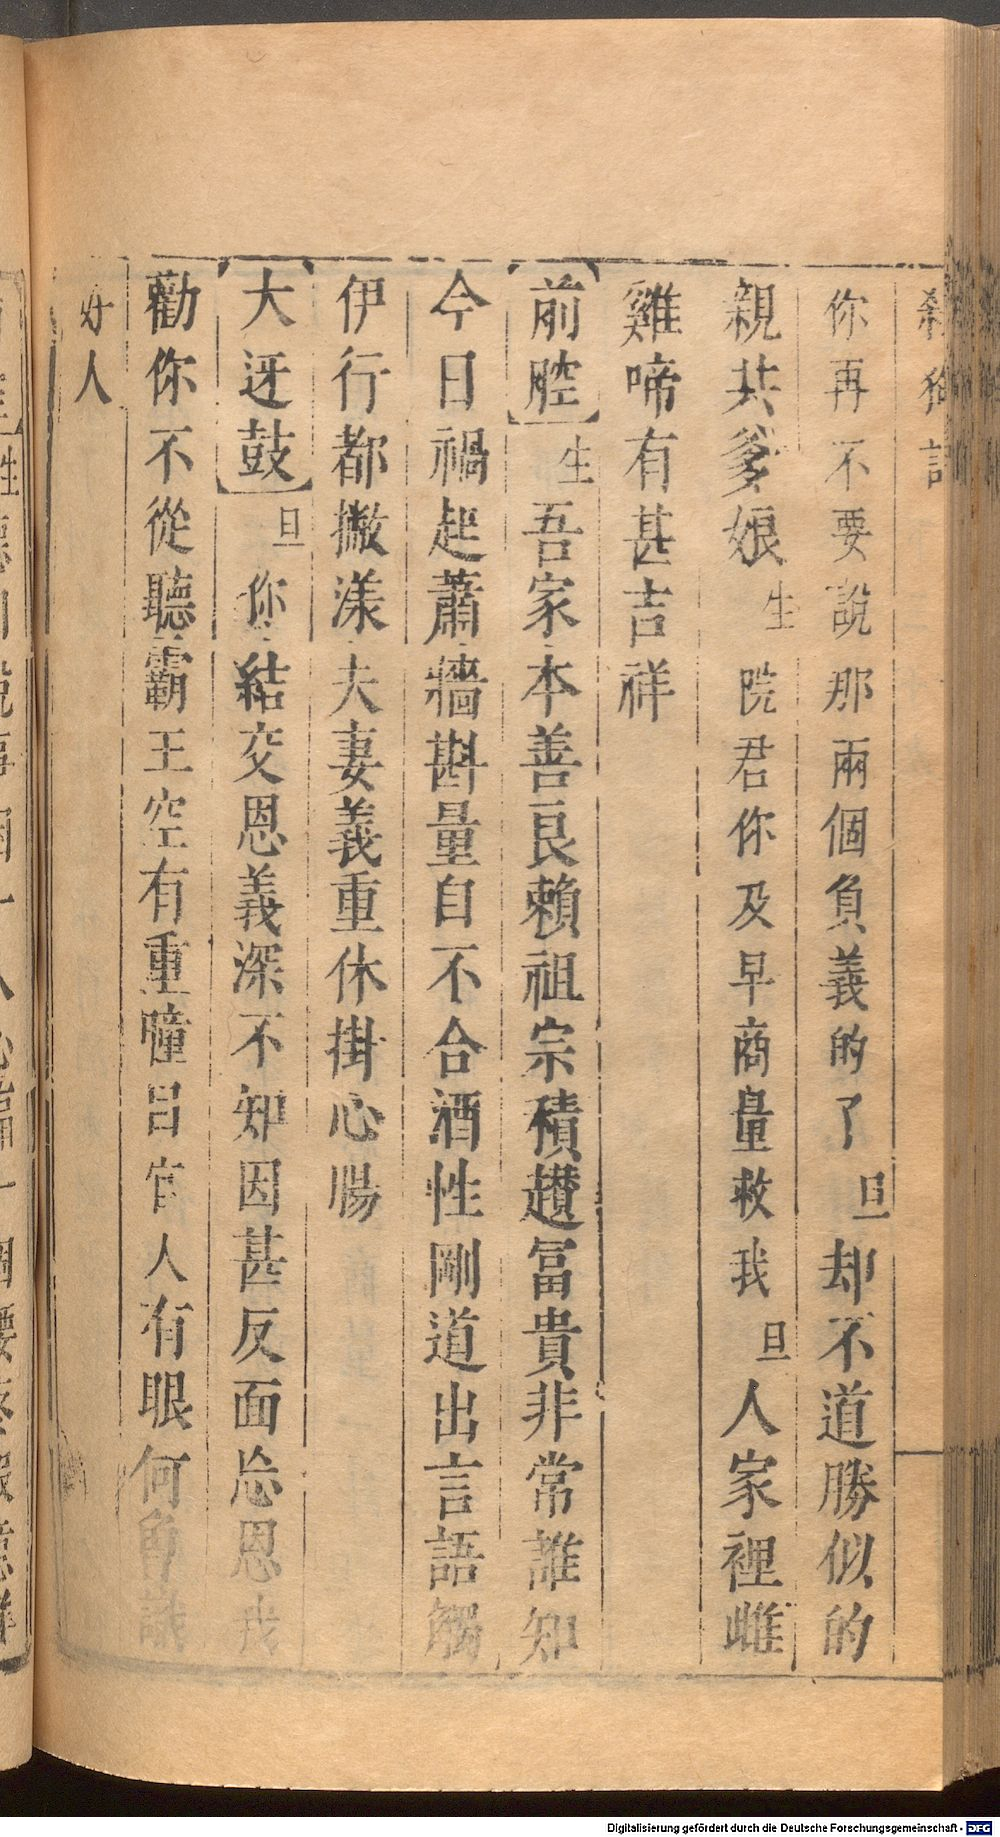 殺狗記
你再不要說那兩個負義的了旦却不道勝似的
親共爹娘生院君你及早商量救我旦人家裡雌
雞啼有甚吉祥
【前腔】生吾家本善良賴祖宗積趲冨貴非常誰知
今日禍起蕭牆斟量自不合酒性剛道出言語觸
伊行都撇漾夫妻義重休掛心腸
【大迓鼓】旦你結交恩義深不知因甚反面忘恩我
勸你不從聽霸王空有重瞳呂官人有眼何曾識
好人
Digitalisierung gefördert durch die Deutsche Forschungsgemeinschaft - DFG